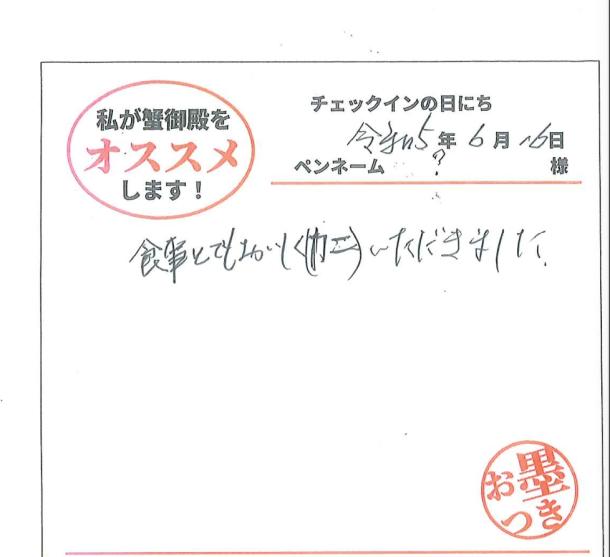 私が蟹御殿を
オススメ
します！
チェックインの日にち
令和5年6月16日
ペンネーム ? 様
食事とてもおいしく(カニ)いただきました。
お墨
つき